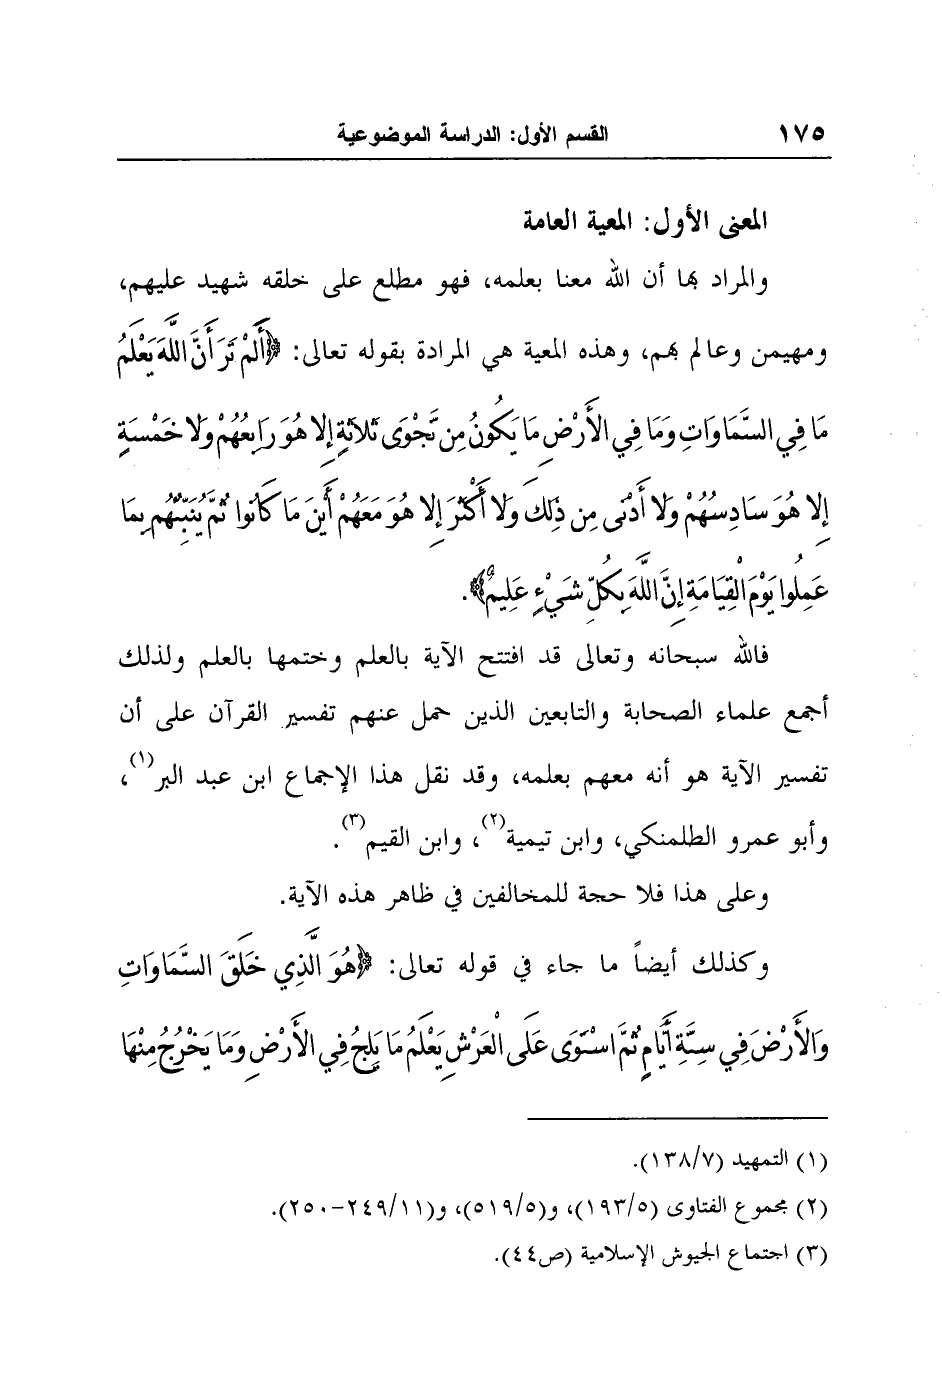 ١٧٥ القسم الأول: الدراسة الموضوعية
المعنى الأول: المعية العامة
والمراد بها أن الله معنا بعلمه، فهو مطلع على خلقه شهيد عليهم،
ومهيمن وعالم بهم، وهذه المعية هي المرادة بقوله تعالى: ﴿أَلَمْ تَرَ أَنَّ اللَّهَ يَعْلَمُ
مَا فِي السَّمَاوَاتِ وَمَا فِي الْأَرْضِ مَا يَكُونُ مِن نَّجْوَى ثَلاثَةٍ إِلا هُوَ رَابِعُهُمْ وَلا خَمْسَةٍ
إِلا هُوَ سَادِسُهُمْ وَلا أَدْنَى مِن ذَلِكَ وَلا أَكْثَرَ إِلا هُوَ مَعَهُمْ أَيْنَ مَا كَانُوا ثُمَّ يُنَبِّئُهُم بِمَا
عَمِلُوا يَوْمَ الْقِيَامَةِ إِنَّ اللَّهَ بِكُلِّ شَيْءٍ عَلِيمٌ﴾.
فالله سبحانه وتعالى قد افتتح الآية بالعلم وختمها بالعلم ولذلك
أجمع علماء الصحابة والتابعين الذين حمل عنهم تفسير القرآن على أن
تفسير الآية هو أنه معهم بعلمه، وقد نقل هذا الإجماع ابن عبد البر(١)،
وأبو عمرو الطلمنكي، وابن تيمية(٢)، وابن القيم(٣).
وعلى هذا فلا حجة للمخالفين في ظاهر هذه الآية.
وكذلك أيضاً ما جاء في قوله تعالى: ﴿هُوَ الَّذِي خَلَقَ السَّمَاوَاتِ
وَالْأَرْضَ فِي سِتَّةِ أَيَّامٍ ثُمَّ اسْتَوَى عَلَى الْعَرْشِ يَعْلَمُ مَا يَلِجُ فِي الْأَرْضِ وَمَا يَخْرُجُ مِنْهَا
(١) التمهيد (١٣٨/٧).
(٢) مجموع الفتاوى (١٩٣/٥)، و(٥١٩/٥)، و(٢٤٩/١١-٢٥٠).
(٣) اجتماع الجيوش الإسلامية (ص٤٤).